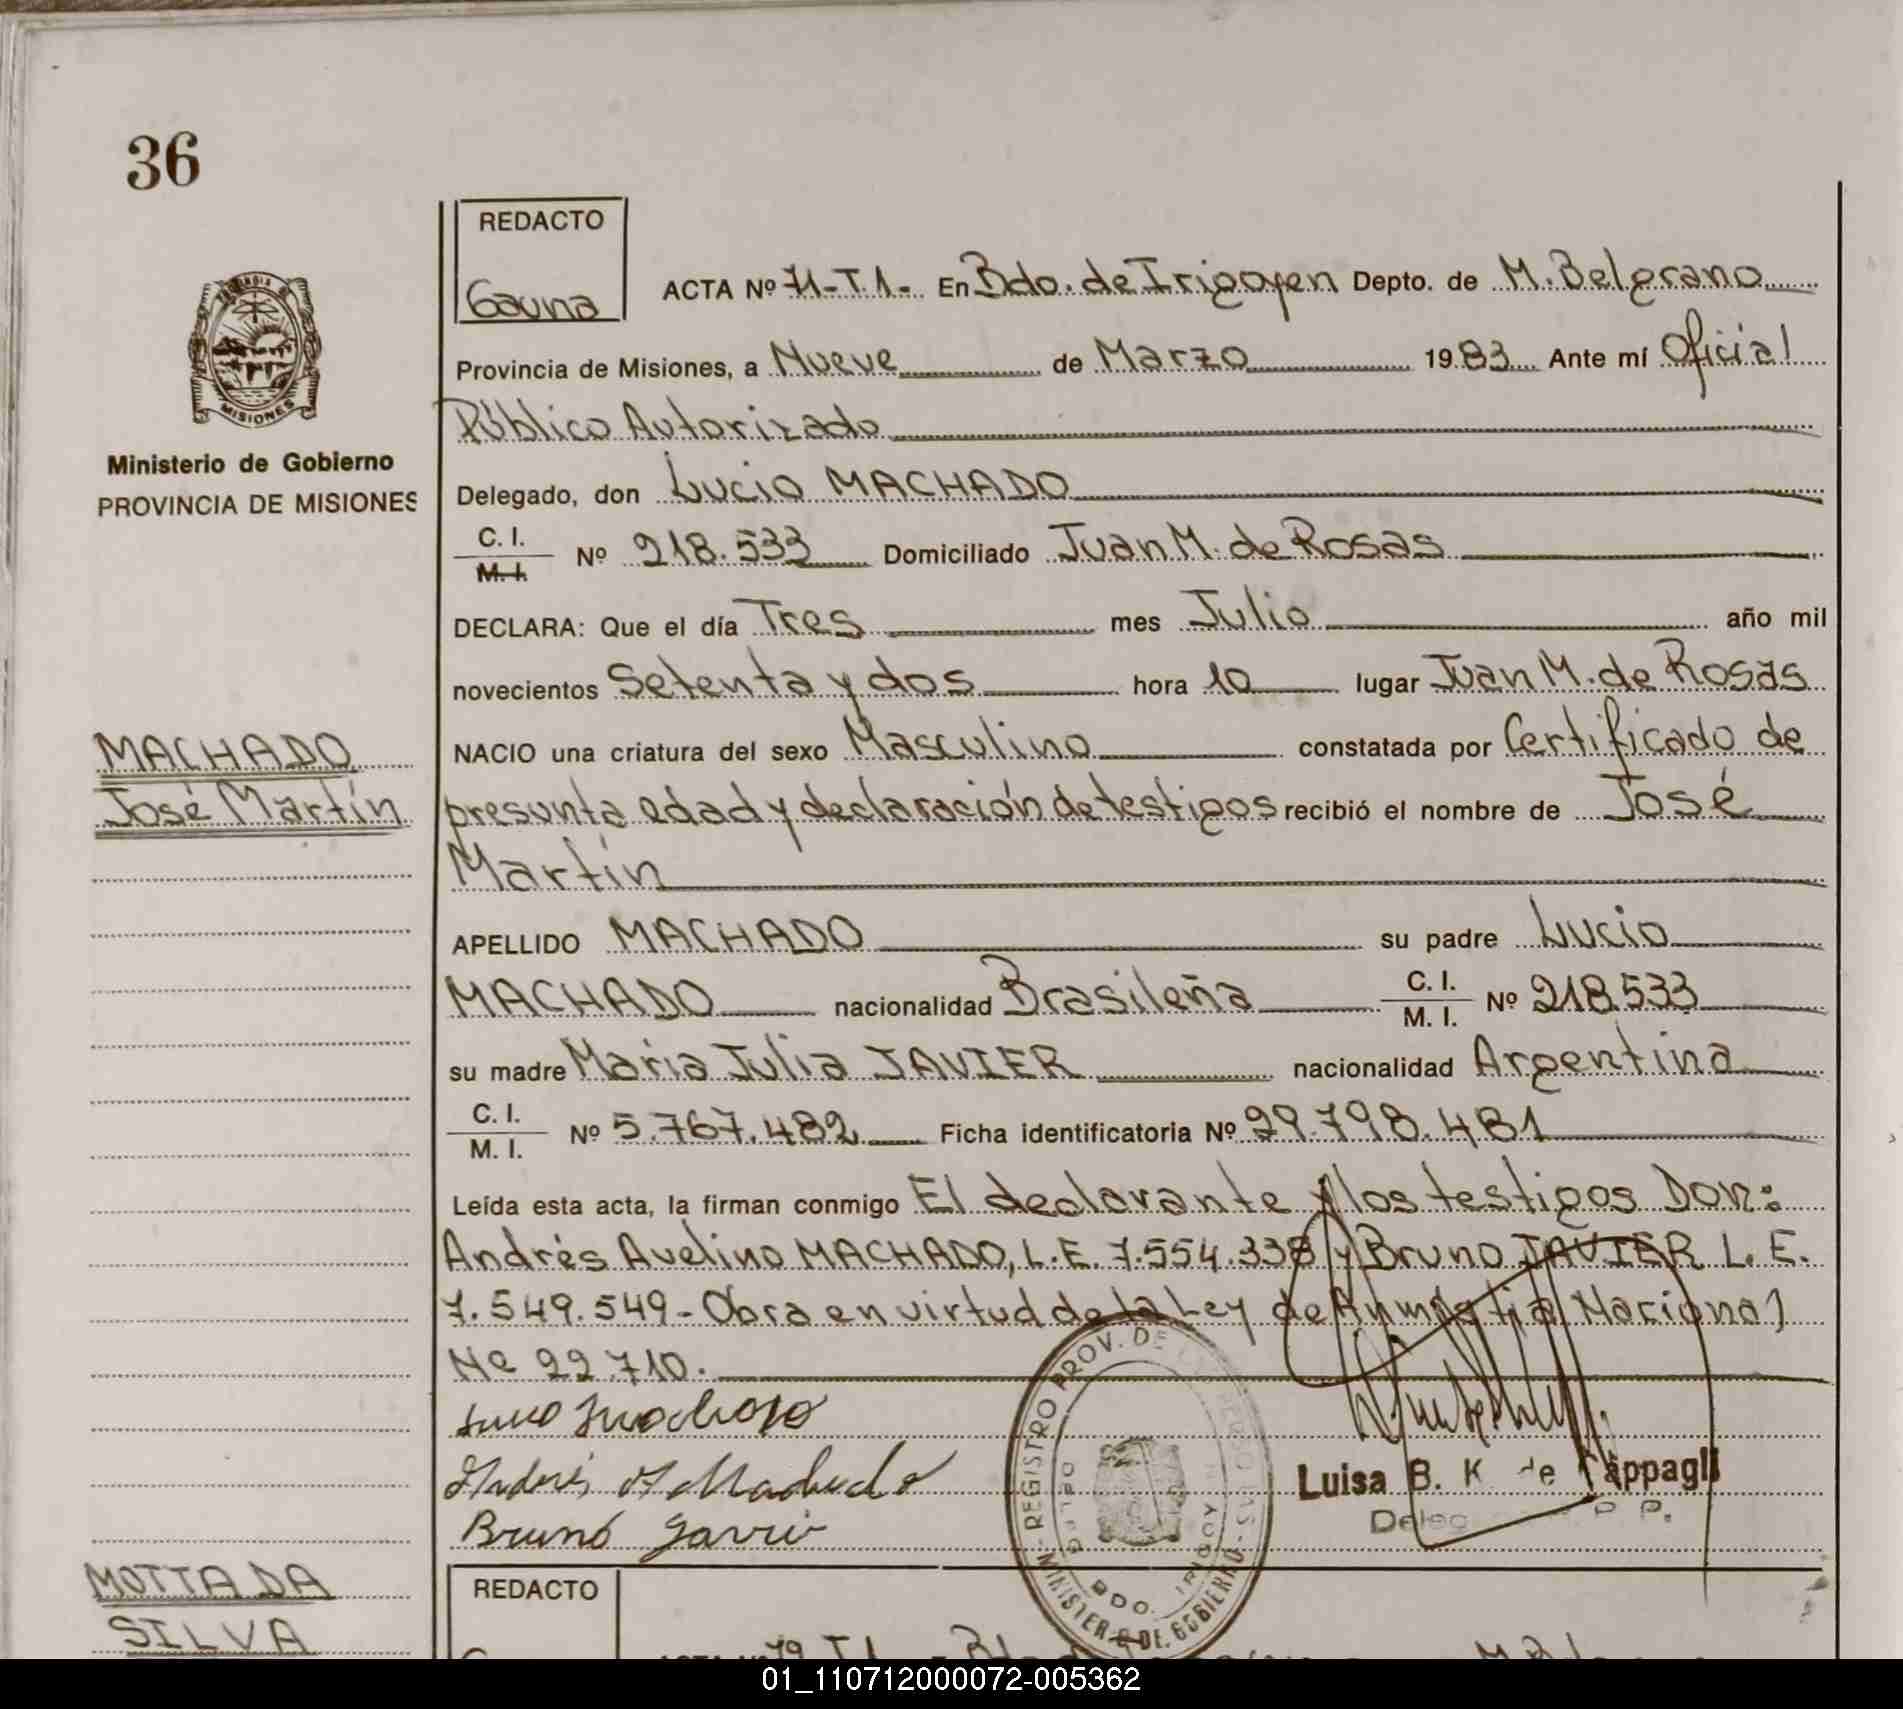 36
REDACTO
Gauna
ACTA Nº 71-T.1- En Bdo. de Irigoyen Depto. de M. Belgrano
Provincia de Misiones, a Nueve de Marzo 1983 Ante mí Oficial
Público Autorizado
Delegado, don Lucio MACHADO
C. I.
M. I.
Nº 218.533 Domiciliado Juan M. de Rosas
DECLARA: Que el día Tres mes Julio año mil
novecientos Setenta y dos hora 10 lugar Juan M. de Rosas
NACIO una criatura del sexo Masculino constatada por Certificado de
presunta edad y declaración de testigos recibió el nombre de José
Martín
APELLIDO MACHADO su padre Lucio
MACHADO nacionalidad Brasileña C. I. M. I. Nº 218.533
su madre María Julia JAVIER nacionalidad Argentina
C. I.
M. I.
Nº 5.767.482 Ficha identificatoria Nº 29.798.481
Leída esta acta, la firman conmigo El declarante y los testigos Don:
Andrés Avelino MACHADO, L.E. 7.554.338 y Bruno JAVIER L. E.
7.549.549 - Obra en virtud de la Ley de Amnistia Nacional
Nº 22.710.
Andrés A Machado
Bruno Javier
Luisa B. K de Cappagli
REGISTRO PROV. DE
BDO. IRIGOY
MINISTER DE GOBIERNO
MISIONES
Ministerio de Gobierno
PROVINCIA DE MISIONES
MACHADO
José Martín
MOTTA DA
SILVA
REDACTO
01_110712000072-005362